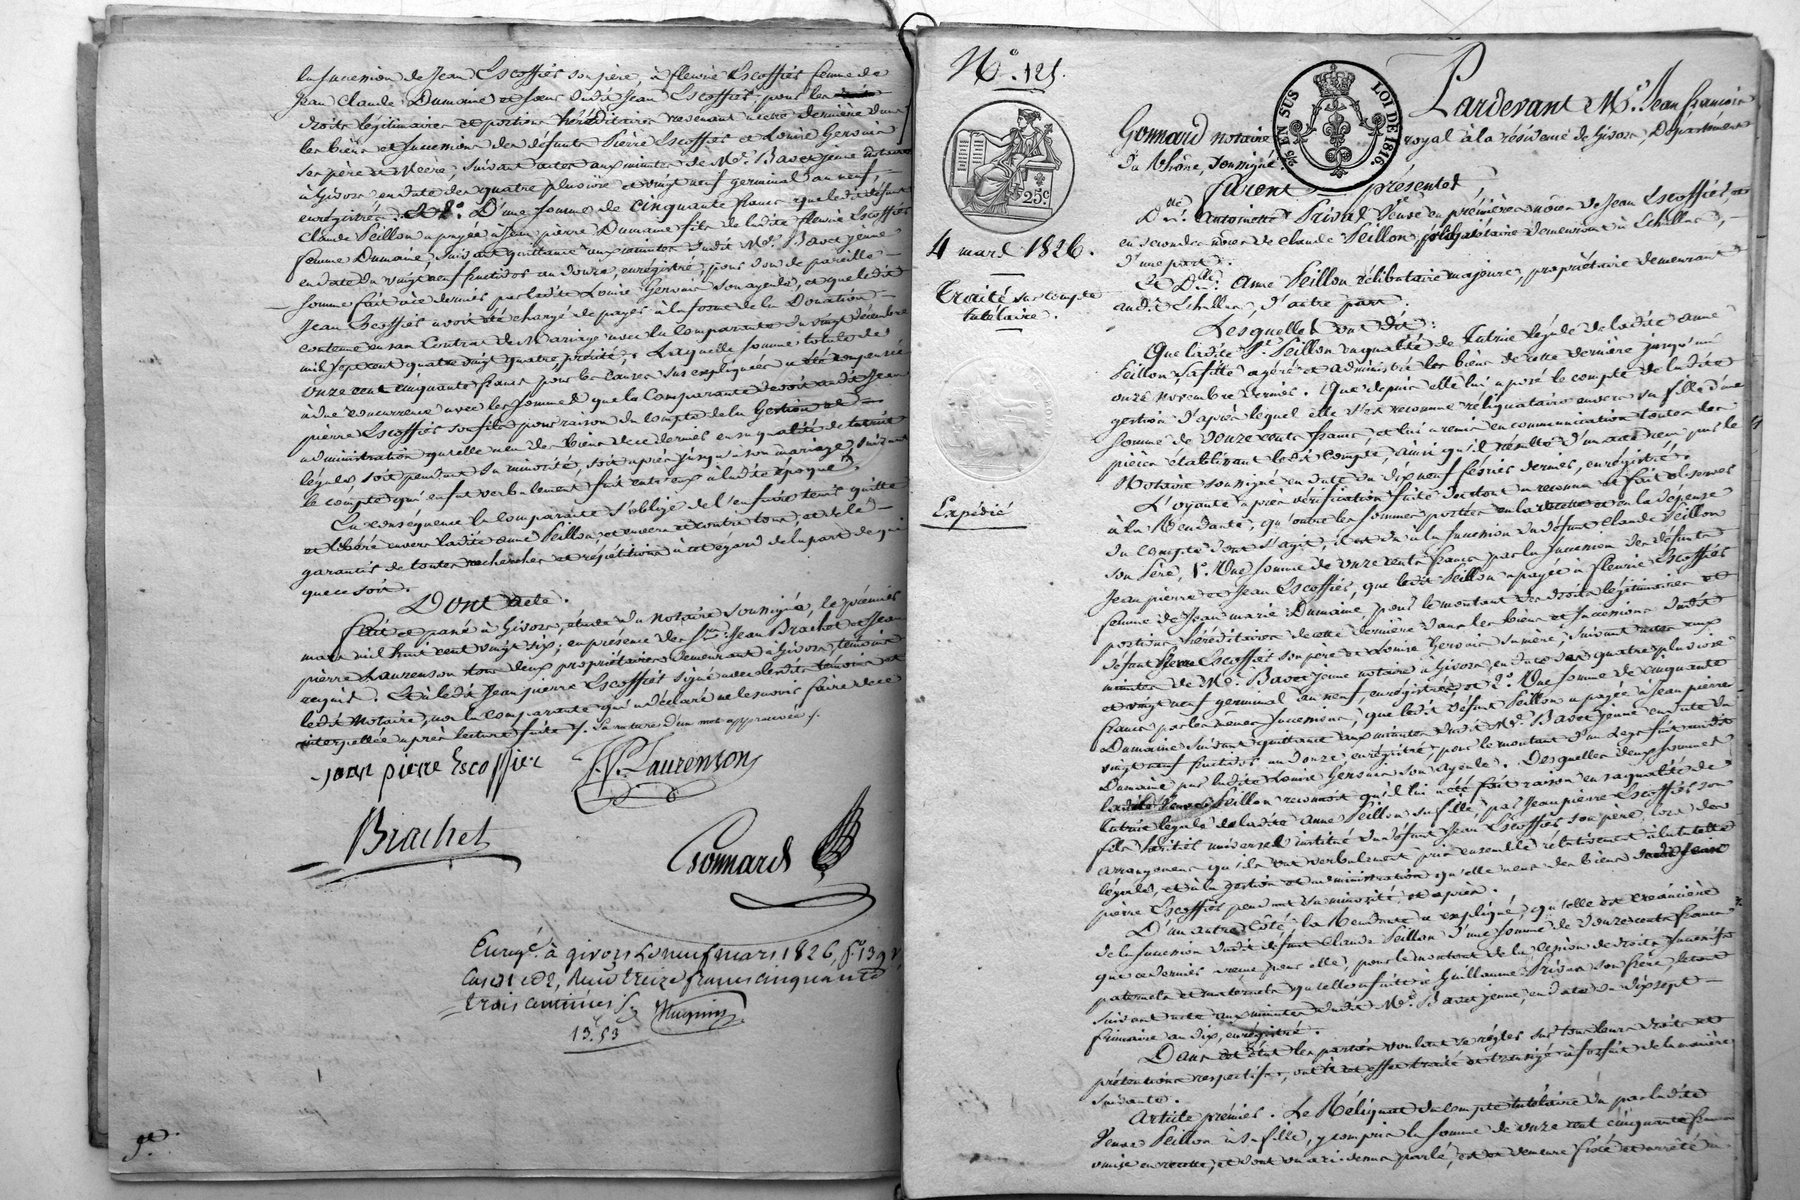 la succession de Jean Escoffier son père, à fleurie Escoffier femme de
Jean Claude Dumaine et sœur dudit Jean Escoffier, pour les
droits légitimaires et portions héréditaires revenant à cette dernière dans
les biens et successions des défunts Pierre Escoffier et Louise Gervais
ses père et Mère, suivant actes aux minutes de Me. Bavet jeune notaire
à Givors en date des quatre pluviôse et vingt neuf germinal an neuf,
enregistrés. 2o. D'une somme de cinquante francs que ledit défunt
Claude Peillon a payée à Jean pierre Dumaine fils de ladite fleurie Escoffier
femme Dumaine, suivant quittance aux minutes dudit Me. Bavet jeune
en date du vingt neuf fructidor an douze, enregistré, pour don de pareille
somme fait à ce dernier par ladite Louise Gervais son ayeule, et que ledit
Jean Escoffier avoit été chargé de payer à la forme de la Donation
contenue en son Contrat de Mariage avec la Comparante du vingt décembre
mil sept cent quatre vingt quatre, précité; Laquelle somme totale de
onze cent cinquante francs pour les causes sus expliquées a été compensée
à due concurrence avec les sommes que la Comparante devoit audit Jean
pierre Escoffier son fils pour raison du compte de la Gestion et
administration qu'elle a eu des biens de ce dernier en sa qualité de tutrice
légale, soit pendant sa minorité, soit après jusqu'à son mariage, suivant
le compte qui en fut verbalement fait entr'eux à ladite époque.
En conséquence la comparante s'oblige de l'en faire tenir quitte
et libéré envers ladite anne Peillon, et envers et contre tous, et de le
garantir de toutes recherches et répétitions à cet égard de la part de qui
que ce soit.
Dont acte.
fait et passé à Givors, étude du Notaire soussigné, le premier
mars mil huit cent vingt six; en présence des Srs. Jean Brachet et Jean
pierre Laurenson tous deux propriétaires demeurant à Givors, témoins
requis. Et a ledit Jean pierre Escoffier signé avec lesdits témoins et
ledit Notaire, non la comparante qui a déclaré ne le savoir faire de ce
interpellée après lecture faite /. La rature d'un mot approuvée /.
jean pierre Escoffier J. P. Laurenson
Brachet
Gonnard
Enregé. à givors le neuf mars 1826, fo. 139 v.
case 1 et 2, Reçu treize francs cinquante
trois centimes /.
13f. 53
9e.
No. 121.
4 mars 1826.
Traité sur compte
tutélaire.
Expédié
25c
5/6 EN SUS LOI DE 1816.
Pardevant Me. Jean françois
Gonnard notaire royal à la résidence de Givors, Département
du Rhône, soussigné.
furent présentes
Dme. antoinette Privat Veuve en premières nôces de Jean Escoffier, et
en secondes nôces de claude Peillon, propriétaire demeurant à Echallas,
d'une part.
Et Dlle. Anne Peillon célibataire majeure, propriétaire demeurant
audit Echallas, d'autre part.
Lesquelles ont dit:
Que ladite Ve. Peillon en qualité de Tutrice légale de ladite anne
Peillon, sa fille a géré et administré les biens de cette dernière jusqu'au
onze novembre dernier. Que depuis elle lui a posé le compte de ladite
gestion d'après lequel elle s'est reconnue réliquataire envers sa fille d'une
somme de douze cents francs, et lui a remis en communication toutes les
pièces établissant ledit compte, ainsi qu'il résulte d'un acte reçu par le
Notaire soussigné en date du dix neuf février dernier, enregistré.
L'oyante après vérification faite du tout a reconnu et fait observer
à la Rendante, qu'outre les sommes portées en la recette et en la dépense
du compte dont s'agit; il est dû à la succession du défunt Claude Peillon
son père, 1o. Une somme de onze cents francs par la succession des défunts
Jean pierre et Jean Escoffier, que ledit Peillon a payée à fleurie Escoffier
femme de Jean marie Dumaine, pour le montant des droits légitimaires et
portions héréditaires de cette dernière dans les biens et successions dudit
défunt Pierre Escoffier son père et Louise Gervais sa mère, suivant actes aux
minutes de Me. Bavet jeune notaire à Givors, en date des quatre pluviôse
et vingt neuf germinal an neuf, enregistrés et 2o. Une somme de cinquante
francs par les mêmes successions, que ledit défunt Peillon a payée à Jean pierre
Dumaine suivant quittance aux minutes dudit Me. Bavet jeune en date du
vingt neuf fructidor an douze, enregistré, pour le montant d'un Legs fait audit
Dumaine par ladite Louise Gervais son ayeule. Desquelles deux sommes
ladite Veuve Peillon reconnoit qu'il lui a été fait raison en sa qualité de
tutrice légale de ladite Anne Peillon sa fille par Jean pierre Escoffier son
fils héritier universel institué du défunt Jean Escoffier son père, lors des
arrangemens qu'ils ont verbalement pris ensemble relativement à la tutelle
légale, et à la gestion et administration qu'elle a eues des biens dudit Jean
pierre Escoffier pendant sa minorité, et après.
D'un autre côté, la Rendante a expliqué, qu'elle est créancière
de la succession dudit défunt Claude Peillon d'une somme de douze cents francs
que ce dernier a reçue pour elle, pour le montant de la cession de droits successifs
paternels et maternels qu'elle en faite à Guillaume Privat son frère, le tout
suivant acte aux minutes dudit Me. Bavet jeune, en date du dix sept
frimaire an dix, enregistré.
Dans cet état les parties voulant se régler sur tous leurs droits et
prétentions respectifs, ont à cet effet traité et transigé à forfait de la manière
suivante.
Article premier. Le Réliquat du compte tutélaire dû par ladite
Veuve Peillon à sa fille, y compris la somme de onze cent cinquante francs
omise en recette, et dont on a ci dessus parlé, est et demeure fixé et arrêté à